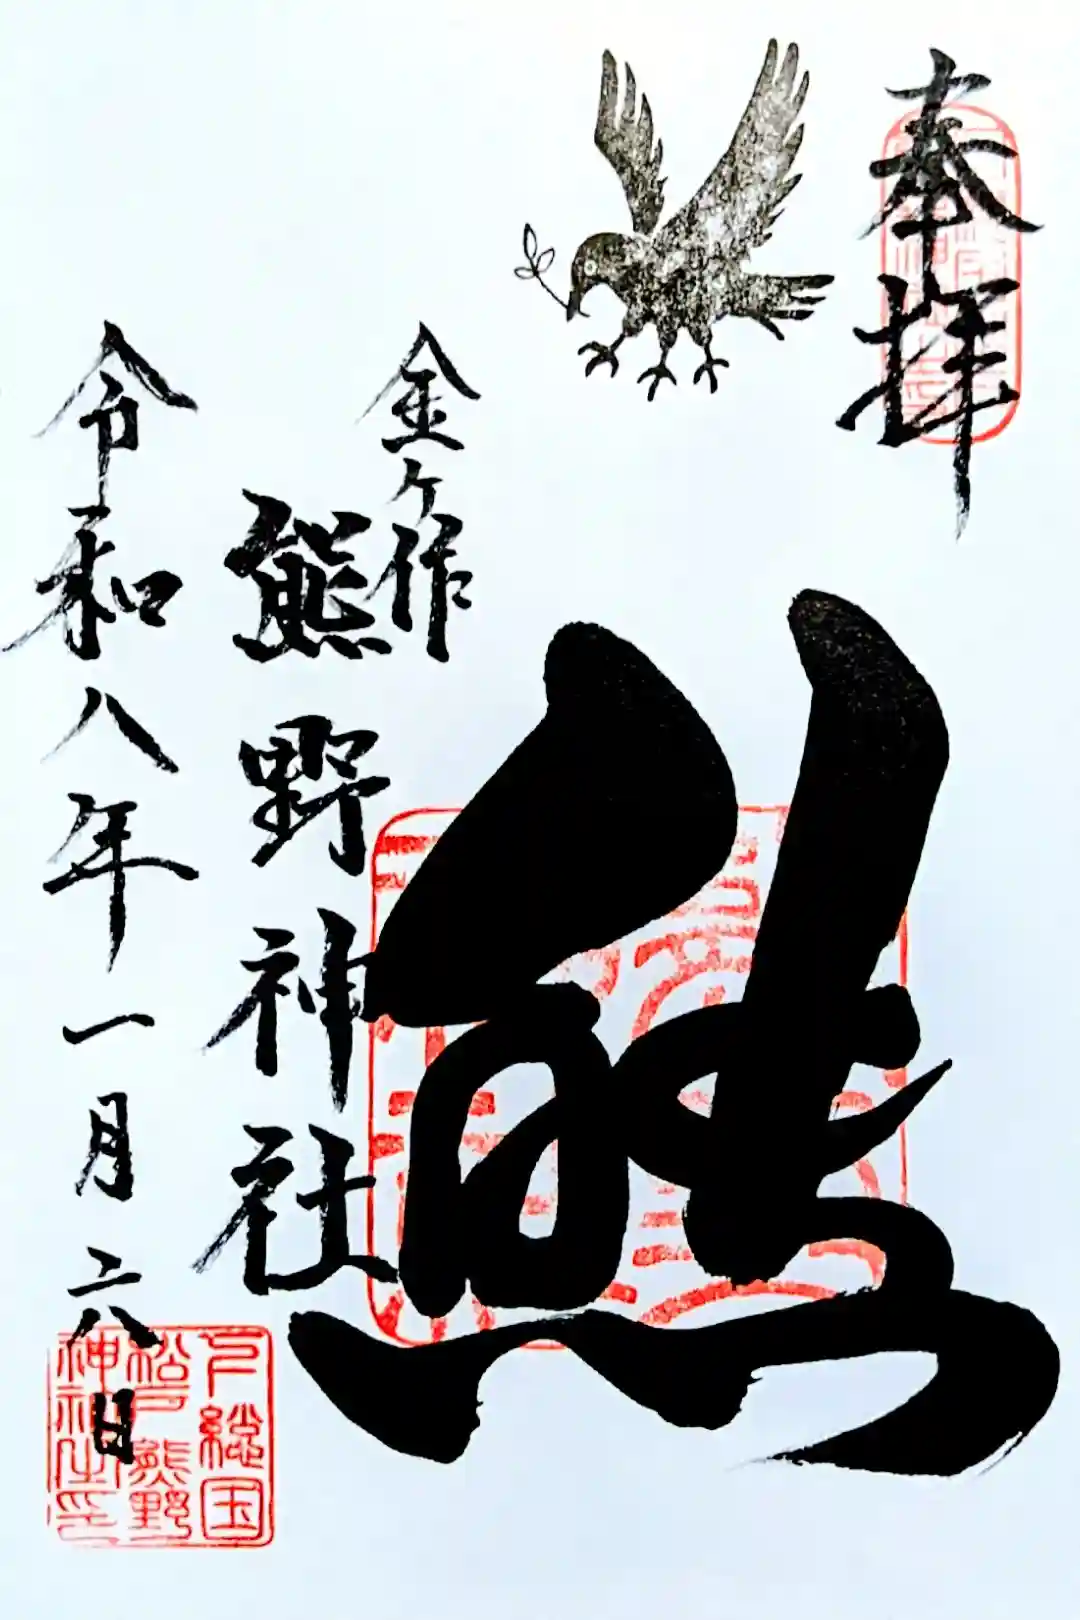 奉拝
熊
金ヶ作
熊野神社
令和八年一月六日
下総国
松戸熊野
神社之印